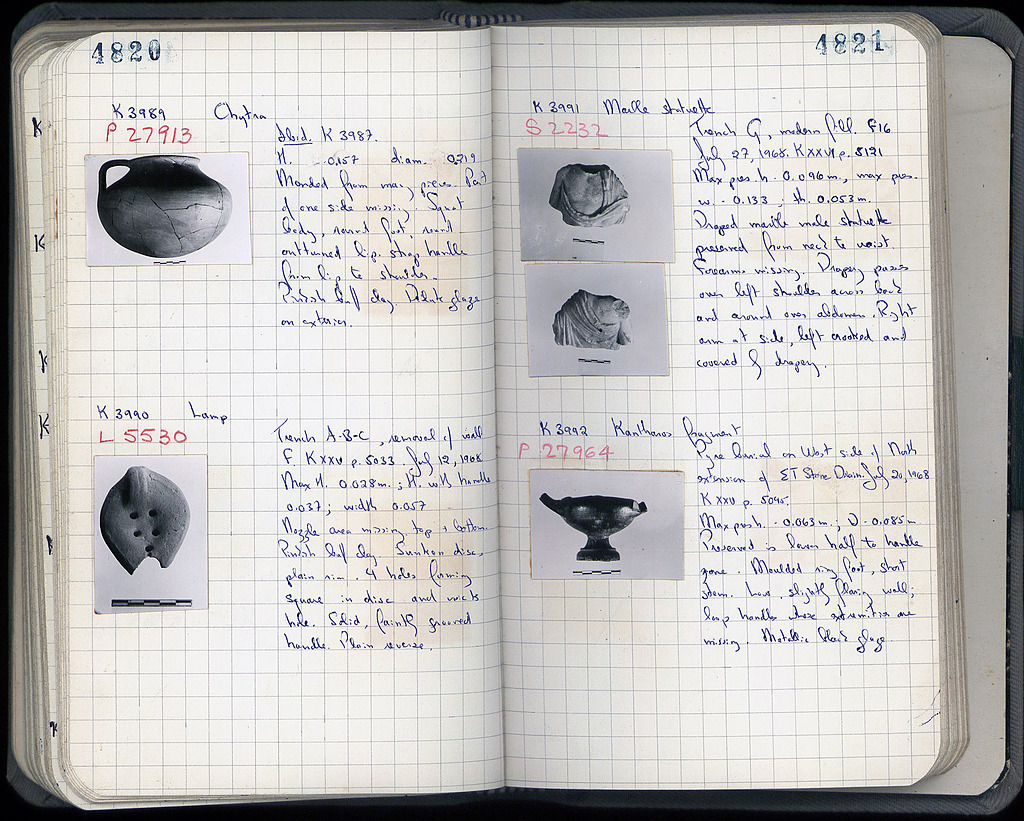 4820
K 3989 Chytra
P 27913
Ibid. K 3987.
H. 0.157 diam. 0.219
Mended from many pieces. Part
of one side missing. Squat
body, round foot, round
outturned lip, strap handle
from lip to shoulder.
Pinkish buff clay. Dilute glaze
on exterior.
K 3990 Lamp
L 5530
Trench A-B-C, removal of wall
F. K XXV p. 5033. July 12, 1968
Max H. 0.028m.; H. with handle
0.037; width 0.057
Nozzle area missing top + bottom.
Pinkish buff clay. Sunken disc,
plain rim. 4 holes forming
square in disc and wick
hole. Solid, faintly grooved
handle. Plain reverse.
4821
K 3991 Marble statuette
S 2232
Trench G, modern fill. F16
July 27, 1968. K XXVI p. 5121
Max pres. h. - 0.096m, max pres.
w. - 0.133, th. 0.053m.
Draped marble male statuette
preserved from neck to waist.
Forearms missing. Drapery passes
over left shoulder across back
and around over abdomen. Right
arm at side, left crooked and
covered by drapery.
K 3992 Kantharos fragment
P 27964
Pyre burial on West side of North
extension of ET Stone Drain. July 20, 1968
K XXV p. 5095.
Max pres h. - 0.063m.; D - 0.085m
Preserved is lower half to handle
zone. Moulded ring foot, short
stem. Low, slightly flaring wall;
loop handles whose extremities are
missing. Metallic black glaze